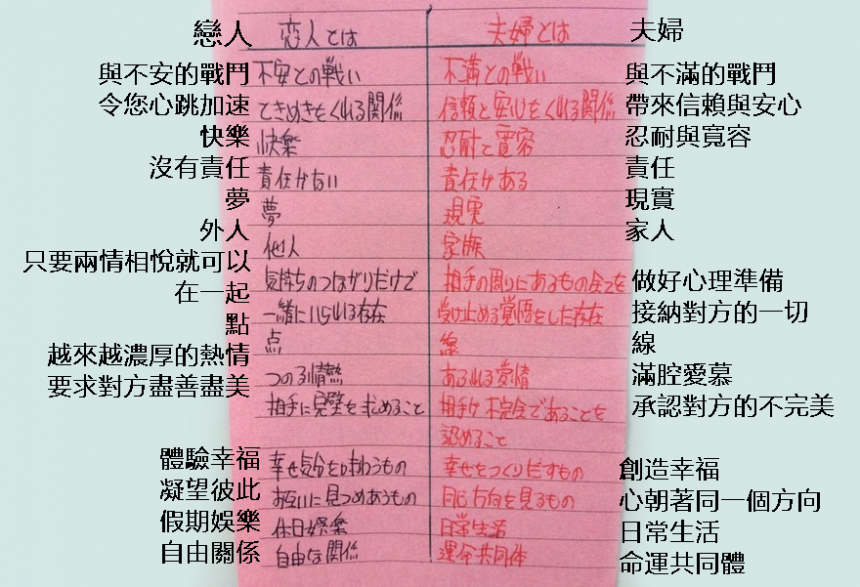 戀人
恋人とは
夫婦とは
夫婦
與不安的戰鬥
不安との戦い
不満との戦い
與不滿的戰鬥
令您心跳加速
ときめきをくれる関係
信頼と安心をくれる関係
帶來信賴與安心
快樂
快楽
忍耐と寛容
忍耐與寬容
沒有責任
責任がない
責任がある
責任
夢
夢
現実
現實
外人
他人
家族
家人
只要兩情相悅就可以
在一起
気持ちのつながりだけで
一緒にいられる存在
相手の周りにあるもの全てを
受け止める覚悟をした存在
做好心理準備
接納對方的一切
點
点
線
線
越來越濃厚的熱情
つのる情熱
あふれる愛情
滿腔愛慕
要求對方盡善盡美
相手に完璧を求めること
相手が不完全であることを
認めること
承認對方的不完美
體驗幸福
幸せ気分を味わうもの
幸せをつくりだすもの
創造幸福
凝望彼此
お互いに見つめあうもの
同じ方向を見るもの
心朝著同一個方向
假期娛樂
休日娯楽
日常生活
日常生活
自由關係
自由な関係
運命共同体
命運共同體